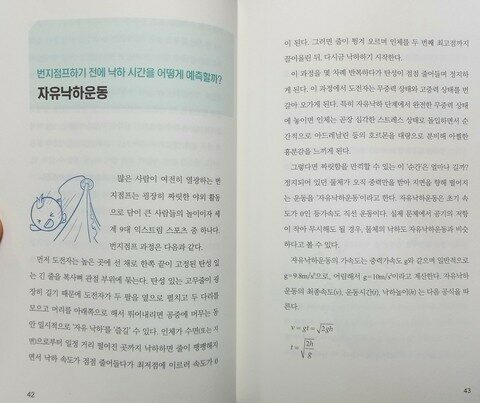 번지점프하기 전에 낙하 시간을 어떻게 예측할까?
자유낙하운동
많은 사람이 여전히 열광하는 번
지점프는 굉장히 짜릿한 야외 활동
으로 담이 큰 사람들의 놀이이자 세
계 9대 익스트림 스포츠 중 하나다.
번지점프 과정은 다음과 같다.
먼저 도전자는 높은 곳에 선 채로 한쪽 끝이 고정된 탄성 있
는 긴 줄을 복사뼈 관절 부위에 묶는다. 탄성 있는 고무줄이 굉
장히 길기 때문에 도전자가 두 팔을 옆으로 펼치고 두 다리를
모으고 머리를 아래쪽으로 해서 뛰어내리면 공중에 머무는 동
안 일시적으로 '자유 낙하'를 '즐길' 수 있다. 인체가 수면(또는 지
면)으로부터 일정 거리 떨어진 곳까지 낙하하면 줄이 팽팽해지
면서 낙하 속도가 점점 줄어들다가 최저점에 이르러 속도가 0
42
이 된다. 그러면 줄이 튕겨 오르며 인체를 두 번째 최고점까지
끌어올린 뒤, 다시금 낙하하기 시작한다.
이 과정을 몇 차례 반복하다가 탄성이 점점 줄어들며 정지하
게 된다. 이 과정에서 도전자는 무중력 상태와 고중력 상태를 번
갈아 오가게 된다. 특히 자유낙하 단계에서 완전한 무중력 상태
에 놓이면 인체는 곧장 심각한 스트레스 상태로 돌입하면서 순
간적으로 아드레날린 등의 호르몬을 대량으로 분비해 아찔한
흥분감을 느끼게 된다.
그렇다면 짜릿함을 만끽할 수 있는 이 '순간'은 얼마나 길까?
정지되어 있던 물체가 오직 중력만을 받아 지면을 향해 떨어지
는 운동을 '자유낙하운동'이라고 한다. 자유낙하운동은 초기 속
도가 0인 등가속도 직선 운동이다. 실제 문제에서 공기의 저항
이 작아 무시해도 될 경우, 물체의 낙하도 자유낙하운동과 비슷
하다고 볼 수 있다.
자유낙하운동의 가속도는 중력가속도 g와 같으며 일반적으로
g=9.8m/s²으로, 어림해서 g=10m/s²이라고 계산한다. 자유낙하
운동의 최종속도(v), 운동시간(t), 낙하높이(h) 는 다음 공식을 따
른다.
v = gt = √2gh
t = √2h/g
43